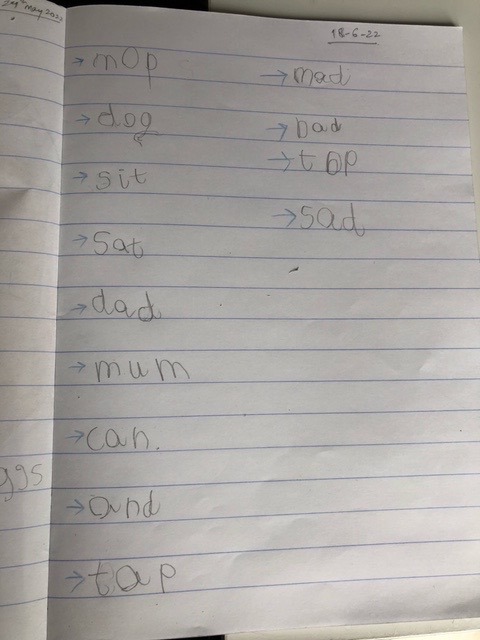 29th May 2022
18-6-22
→ mop
→ dog
→ sit
→ sat
→ dad
→ mum
→ can.
→ and
→ tap
→ mad
→ Dad
→ top
→ sad
ggs